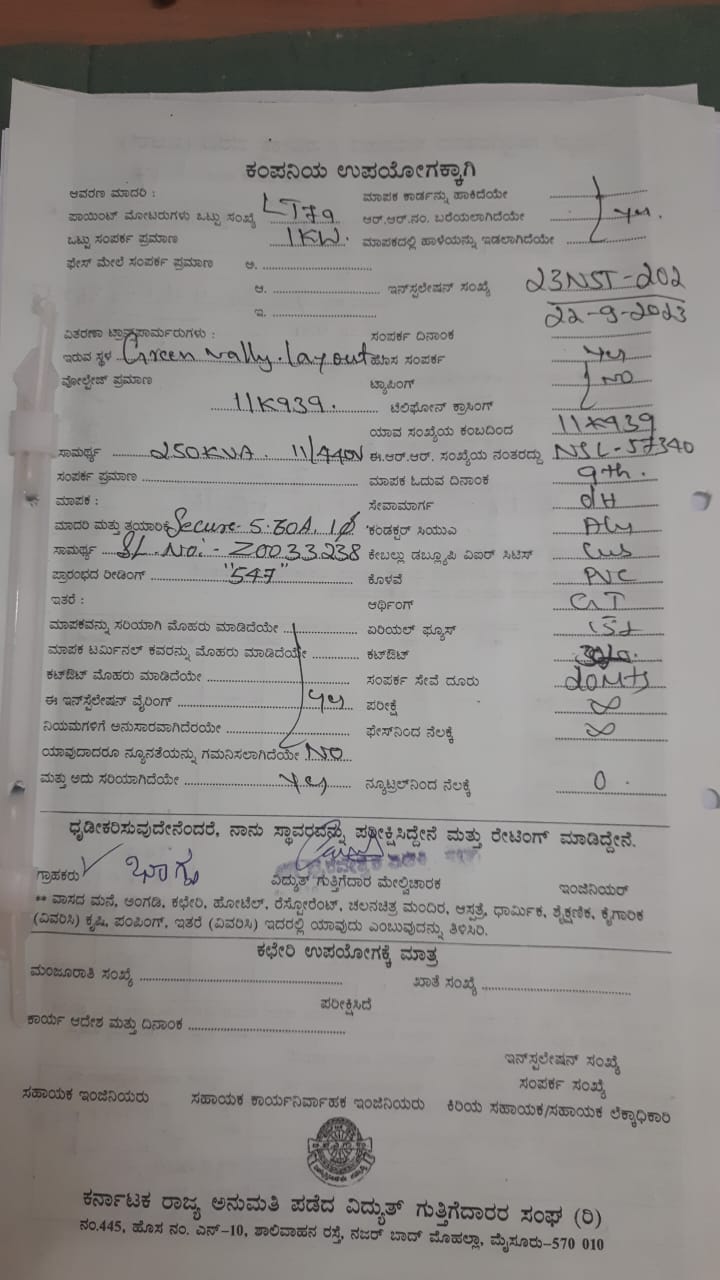 ಕಂಪನಿಯ ಉಪಯೋಗಕ್ಕಾಗಿ
ಆವರಣ ಮಾದರಿ : ಮಾಪಕ ಕಾರ್ಡನ್ನು ಹಾಕಿದೆಯೇ
ಪಾಯಿಂಟ್ ಮೋಟರುಗಳು ಒಟ್ಟು ಸಂಖ್ಯೆ LT79 ಆರ್.ಆರ್.ನಂ. ಬರೆಯಲಾಗಿದೆಯೇ Yes.
ಒಟ್ಟು ಸಂಪರ್ಕ ಪ್ರಮಾಣ 1KW. ಮಾಪಕದಲ್ಲಿ ಹಾಳೆಯನ್ನು ಇಡಲಾಗಿದೆಯೇ
ಫೇಸ್ ಮೇಲೆ ಸಂಪರ್ಕ ಪ್ರಮಾಣ ಅ.
ಆ. ಇನ್‌ಸ್ಟಲೇಷನ್ ಸಂಖ್ಯೆ 23NST-202
ಇ. 22-9-2023
ವಿತರಣಾ ಟ್ರಾನ್ಸ್‌ಫಾರ್ಮರುಗಳು : ಸಂಪರ್ಕ ದಿನಾಂಕ
ಇರುವ ಸ್ಥಳ Green vally. layout ಹೊಸ ಸಂಪರ್ಕ Yes
ವೋಲ್ಟೇಜ್ ಪ್ರಮಾಣ ಟ್ಯಾಪಿಂಗ್ NO
11K939. ಟೆಲಿಫೋನ್ ಕ್ರಾಸಿಂಗ್
ಯಾವ ಸಂಖ್ಯೆಯ ಕಂಬದಿಂದ 11K939
ಸಾಮರ್ಥ್ಯ 250KVA. 11/440V ಈ.ಆರ್.ಆರ್. ಸಂಖ್ಯೆಯ ನಂತರದ್ದು NSL-57340
ಸಂಪರ್ಕ ಪ್ರಮಾಣ ಮಾಪಕ ಓದುವ ದಿನಾಂಕ 9th.
ಮಾಪಕ : ಸೇವಾಮಾರ್ಗ OH
ಮಾದರಿ ಮತ್ತು ತಯಾರಿಕೆ Secure 5-30A. 1ø ಕಂಡಕ್ಟರ್ ಸಿಯುಎ Aly
ಸಾಮರ್ಥ್ಯ SL. No:- Z0033238 ಕೇಬಲ್ಲು ಡಬ್ಲ್ಯೂಪಿ ವಿಐಆರ್ ಸಿಟಿಸ್
ಪ್ರಾರಂಭದ ರೀಡಿಂಗ್ "547" ಕೊಳವೆ PVC
ಇತರೆ : ಆರ್ಥಿಂಗ್
ಮಾಪಕವನ್ನು ಸರಿಯಾಗಿ ಮೊಹರು ಮಾಡಿದೆಯೇ ಏರಿಯಲ್ ಫ್ಯೂಸ್
ಮಾಪಕ ಟರ್ಮಿನಲ್ ಕವರನ್ನು ಮೊಹರು ಮಾಡಿದೆಯೇ ಕಟ್‌ಔಟ್
ಕಟ್‌ಔಟ್ ಮೊಹರು ಮಾಡಿದೆಯೇ ಸಂಪರ್ಕ ಸೇವೆ ದೂರು 20Mts
ಈ ಇನ್‌ಸ್ಟಲೇಷನ್ ವೈರಿಂಗ್ Yes ಪರೀಕ್ಷೆ ∞
ನಿಯಮಗಳಿಗೆ ಅನುಸಾರವಾಗಿದೆರಯೇ ಫೇಸ್‌ನಿಂದ ನೆಲಕ್ಕೆ ∞
ಯಾವುದಾದರೂ ನ್ಯೂನತೆಯನ್ನು ಗಮನಿಸಲಾಗಿದೆಯೇ NO
ಮತ್ತು ಅದು ಸರಿಯಾಗಿದೆಯೇ Yes ನ್ಯೂಟ್ರಲ್‌ನಿಂದ ನೆಲಕ್ಕೆ 0
ಧೃಡೀಕರಿಸುವುದೇನೆಂದರೆ, ನಾನು ಸ್ಥಾವರವನ್ನು ಪರೀಕ್ಷಿಸಿದ್ದೇನೆ ಮತ್ತು ರೇಟಿಂಗ್ ಮಾಡಿದ್ದೇನೆ.
ಗ್ರಾಹಕರು ಭಾಗ್ಯ ವಿದ್ಯುತ್ ಗುತ್ತಿಗೆದಾರ ಮೇಲ್ವಿಚಾರಕ ಇಂಜಿನಿಯರ್
** ವಾಸದ ಮನೆ, ಅಂಗಡಿ, ಕಛೇರಿ, ಹೋಟೆಲ್, ರೆಸ್ಟೋರೆಂಟ್, ಚಲನಚಿತ್ರ ಮಂದಿರ, ಆಸ್ಪತ್ರೆ, ಧಾರ್ಮಿಕ, ಶೈಕ್ಷಣಿಕ, ಕೈಗಾರಿಕ
(ವಿವರಿಸಿ) ಕೃಷಿ, ಪಂಪಿಂಗ್, ಇತರೆ (ವಿವರಿಸಿ) ಇದರಲ್ಲಿ ಯಾವುದು ಎಂಬುವುದನ್ನು ತಿಳಿಸಿರಿ.
ಕಛೇರಿ ಉಪಯೋಗಕ್ಕೆ ಮಾತ್ರ
ಮಂಜೂರಾತಿ ಸಂಖ್ಯೆ ಖಾತೆ ಸಂಖ್ಯೆ
ಪರೀಕ್ಷಿಸಿದೆ
ಕಾರ್ಯ ಆದೇಶ ಮತ್ತು ದಿನಾಂಕ
ಇನ್‌ಸ್ಟಲೇಷನ್ ಸಂಖ್ಯೆ
ಸಂಪರ್ಕ ಸಂಖ್ಯೆ
ಸಹಾಯಕ ಇಂಜಿನಿಯರು ಸಹಾಯಕ ಕಾರ್ಯನಿರ್ವಾಹಕ ಇಂಜಿನಿಯರು ಕಿರಿಯ ಸಹಾಯಕ/ಸಹಾಯಕ ಲೆಕ್ಕಾಧಿಕಾರಿ
ಕರ್ನಾಟಕ ರಾಜ್ಯ ಅನುಮತಿ ಪಡೆದ ವಿದ್ಯುತ್ ಗುತ್ತಿಗೆದಾರರ ಸಂಘ (ರಿ)
ನಂ.445, ಹೊಸ ನಂ. ಎನ್–10, ಶಾಲಿವಾಹನ ರಸ್ತೆ, ನಜರ್ ಬಾದ್ ಮೊಹಲ್ಲಾ, ಮೈಸೂರು–570 010